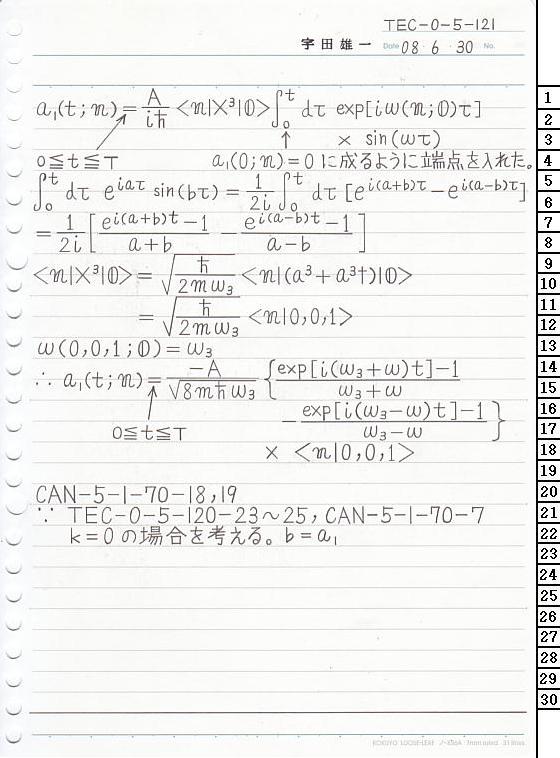 TEC-0-5-121
宇田雄一 Date 08・6・30 No.
a₁(t;n) = A/iħ <n|X³|0> ∫₀ᵗ dτ exp[iω(n;0)τ]
× sin(ωτ)
0≦t≦T a₁(0;n)=0 に成るように端点を入れた。
∫₀ᵗ dτ e^{iaτ} sin(bτ) = 1/2i ∫₀ᵗ dτ [e^{i(a+b)τ} − e^{i(a−b)τ}]
= 1/2i [ (e^{i(a+b)t} − 1)/(a+b) − (e^{i(a−b)t} − 1)/(a−b) ]
<n|X³|0> = √(ħ/2mω₃) <n|(a³+a³†)|0>
= √(ħ/2mω₃) <n|0,0,1>
ω(0,0,1;0) = ω₃
∴ a₁(t;n) = −A/√(8mħω₃) { (exp[i(ω₃+ω)t]−1)/(ω₃+ω)
− (exp[i(ω₃−ω)t]−1)/(ω₃−ω) }
0≦t≦T
× <n|0,0,1>
CAN-5-1-70-18,19
∵ TEC-0-5-120-23〜25, CAN-5-1-70-7
k=0 の場合を考える。b=a₁
1
2
3
4
5
6
7
8
9
10
11
12
13
14
15
16
17
18
19
20
21
22
23
24
25
26
27
28
29
30
KOKUYO LOOSE-LEAF 7mm ruled 31 lines